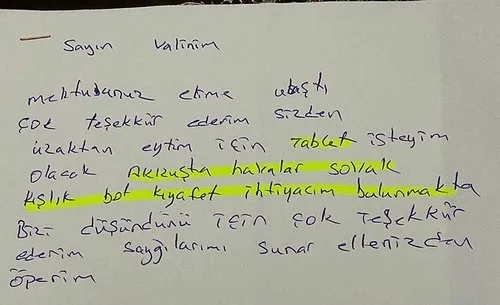 Sayın Valinim
mektubunuz elime ulaştı
çok teşekkür ederim sizden
uzaktan eytim için tablet isteyim
olacak Akkuşta havalar sovak
kışlık bot kıyafet ihtiyacım bulunmakta
Bizi düşündünü için çok teşekkür
ederim sayğılarımı sunar ellenizden
öperim